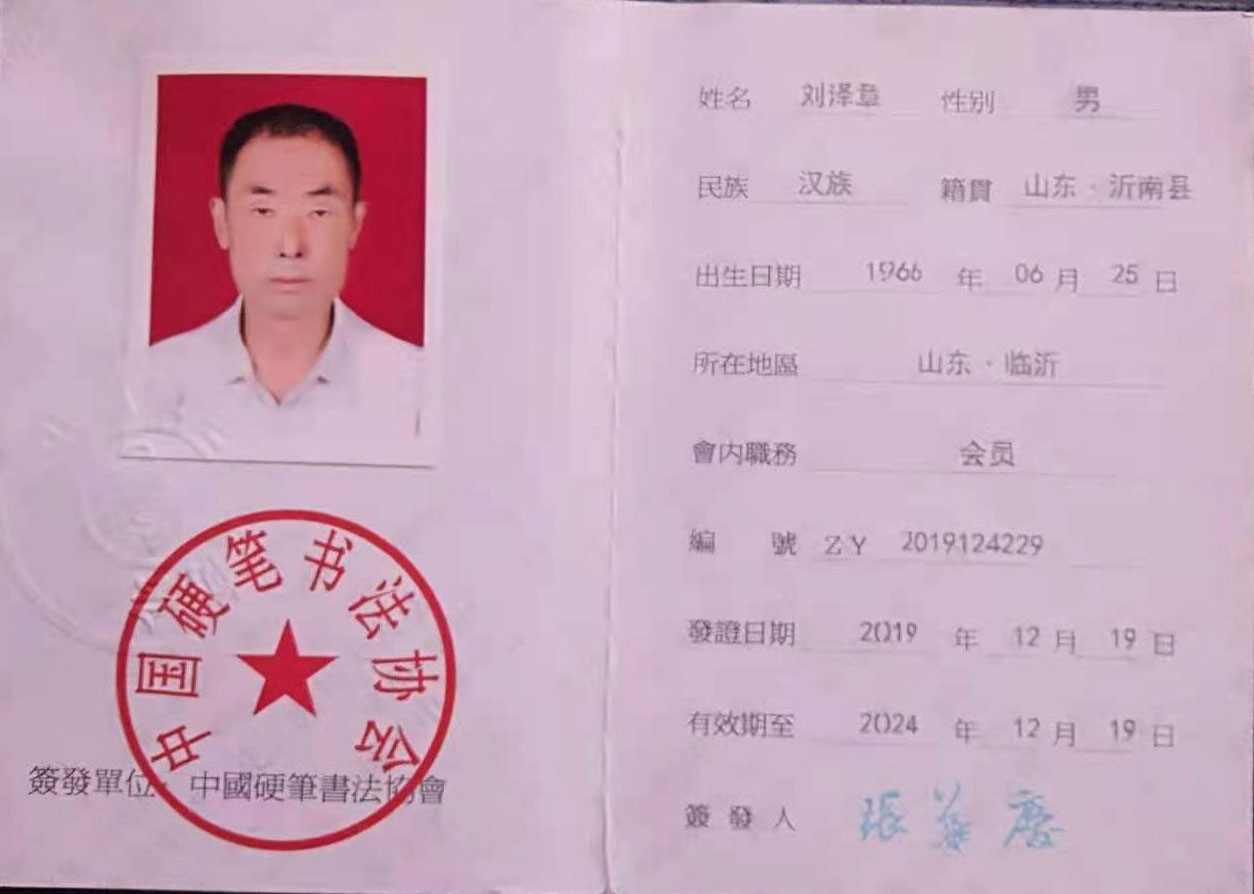 中国硬笔书法协会
簽發單位：中國硬筆書法協會
姓名 刘泽章 性别 男
民族 汉族 籍貫 山东·沂南县
出生日期 1966 年 06 月 25 日
所在地區 山东·临沂
會内職務 会员
編 號 ZY 2019124229
發證日期 2019 年 12 月 19 日
有效期至 2024 年 12 月 19 日
簽發人 張華慶